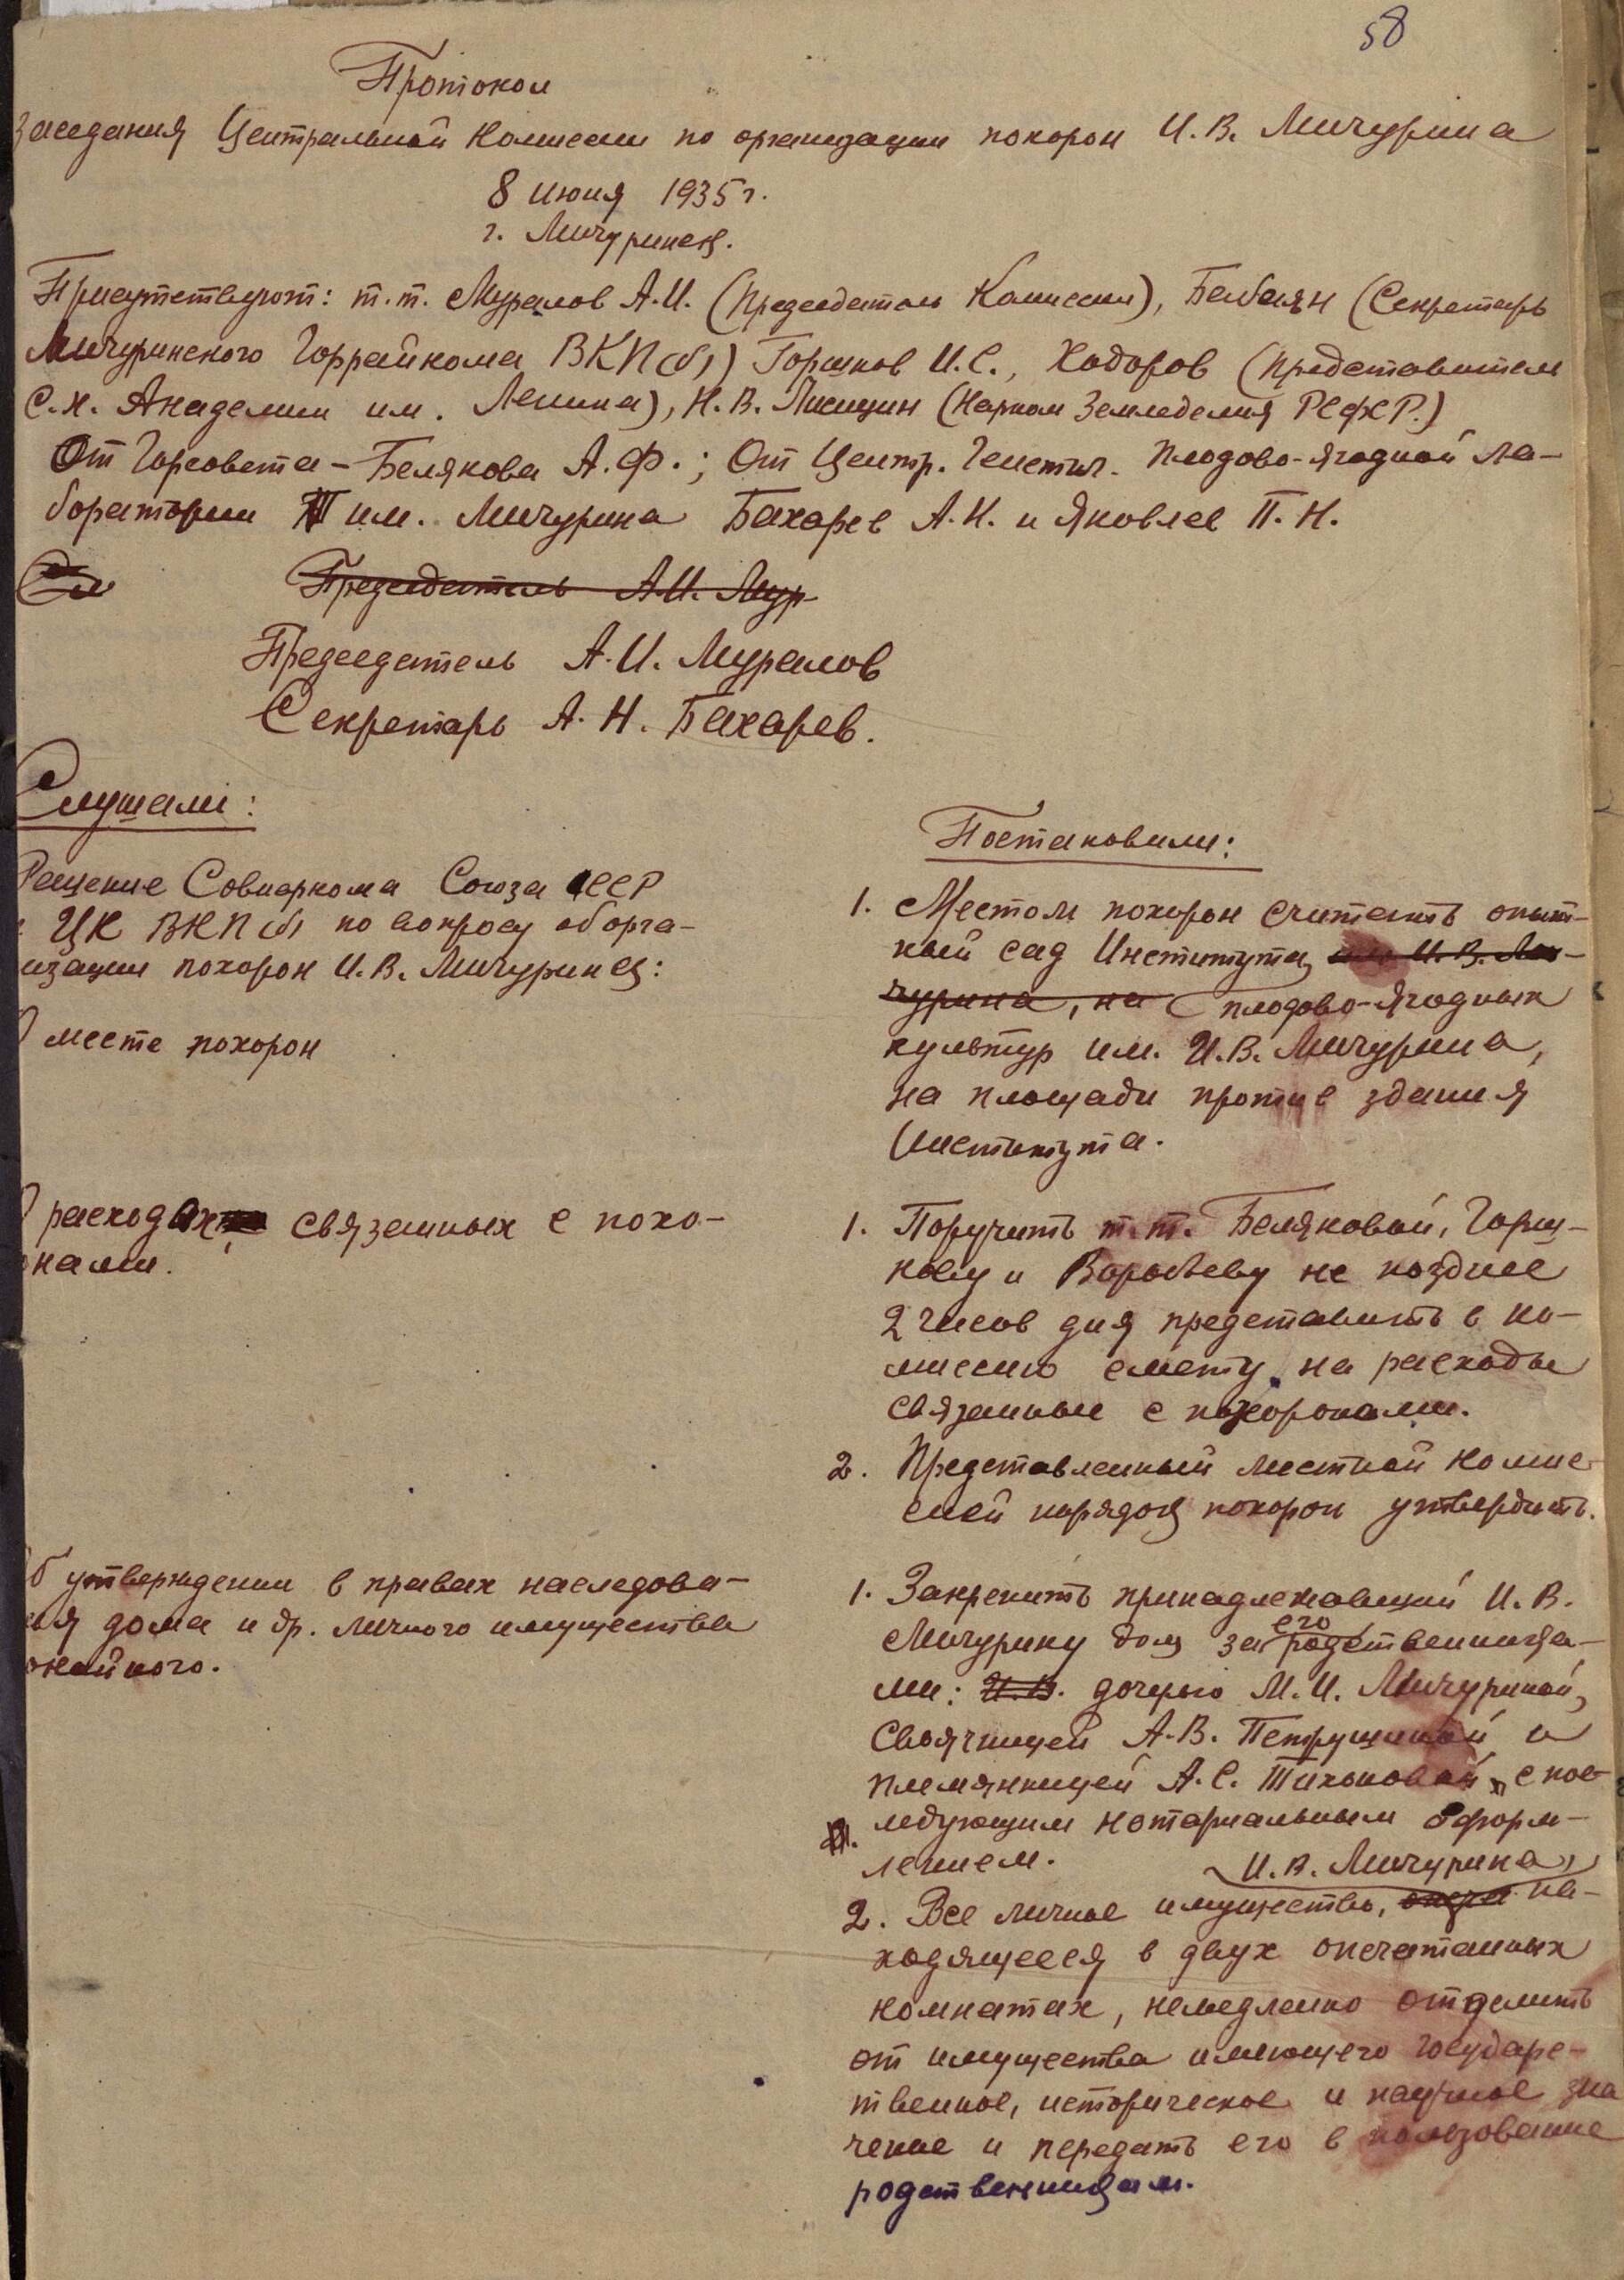 58
Протокол
Заседания Центральной Комиссии по организации похорон И. В. Мичурина
8 июня 1935 г.
г. Мичуринск.
Присутствуют: т.т. Муралов А.И. (Председатель Комиссии), (Секретарь
Мичуринского Горрайкома ВКП(б)) Горшков И.С., Ходоров (Представитель
С.х. Академии им. Ленина), Н.В. Лисицин (Нарком Земледелия РСФСР.)
От Горсовета – Белякова А.Ф.; От Центр. Генетич. Плодово-ягодной ла-
боратории им. Мичурина Бахарев А.Н. и Яковлев П.Н.
Председатель А.И. Мур
Председатель А.И. Муралов
Секретарь А.Н. Бахарев.
Слушали:
Решение Совнаркома Союза ССР
ЦК ВКП(б) по вопросу об орга-
изации похорон И.В. Мичурина:
О месте похорон
О расходах связанных с похо-
онами.
б утверждении в правах наследова-
ия дома и др. личного имущества
окойного.
Постановили:
1. Местом похорон считать опыт-
ный сад Института им. И.В. Ми-
чурина, на плодово-ягодных
культур им. И.В. Мичурина,
на площади против здания
Института.
1. Поручить т.т. Беляковой, Горш-
кову и Воробьеву не позднее
2 часов дня представить в ко-
миссию смету на расходы
связанные с похоронами.
2. Представленный местной комис-
сией порядок похорон утвердить.
1. Закрепить принадлежавший И.В.
Мичурину дом за его родственница-
ми: И.В. дочерью М.И. Мичуриной,
Своячницей А.В. Петрушиной и
племянницей А.С. Тихоновой, с пос-
ледующим нотариальным оформ-
лением.
И.В. Мичурина,
2. Все личное имущество, на-
ходящееся в двух опечатанных
комнатах, немедленно отделить
от имущества имеющего государс-
твенное, историческое и научное зна
чение и передать его в пользование
родственницам.